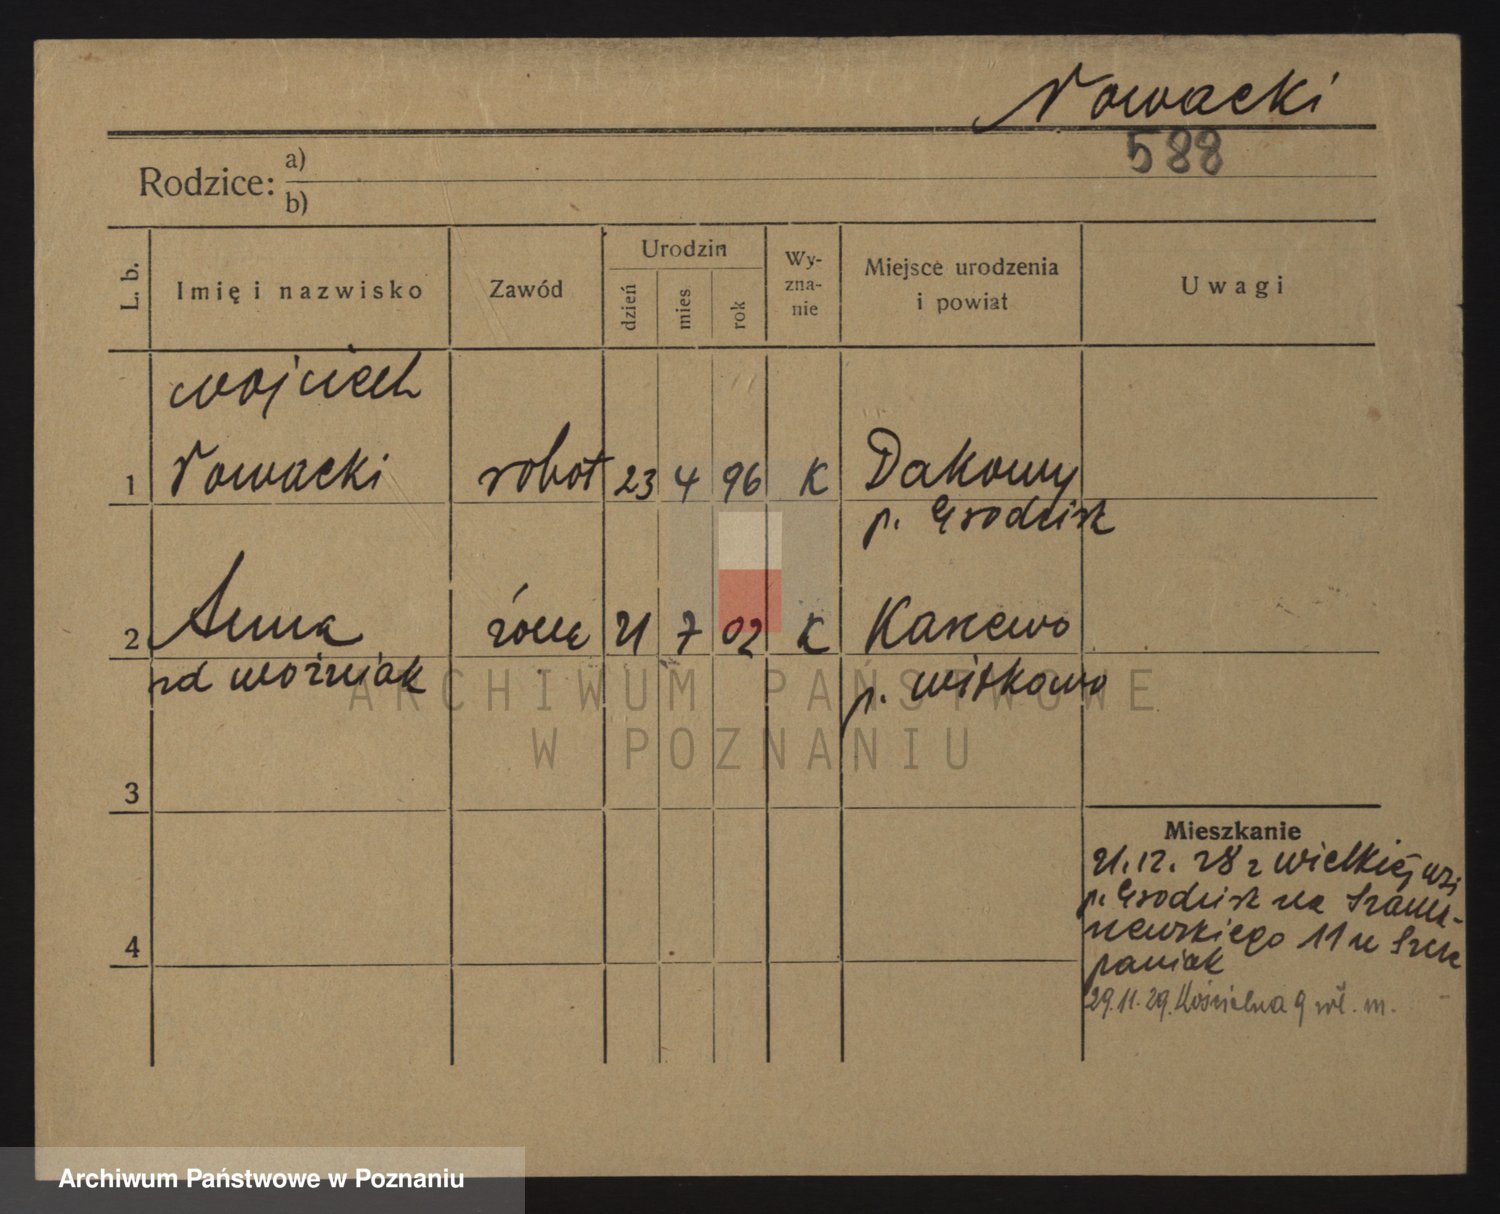 Nowacki
588
Rodzice: a)
b)
L. b.
Imię i nazwisko
Zawód
Urodzin
dzień
mies
rok
Wy-
zna-
nie
Miejsce urodzenia
i powiat
Uwagi
wojciech
1 Nowacki robot 23 4 96 K Dakowy
p. Grodzisk
2 Anna żona 21 7 02 K
zd woźniak p. witkowo
ARCHIWUM PAŃSTWOWE
W POZNANIU
3
Mieszkanie
21.12.28 z wielkiej wsi
p. Grodzisk na
11 u
4 paniak
29.11.29. Kościelna 9 wł. m.
Archiwum Państwowe w Poznaniu